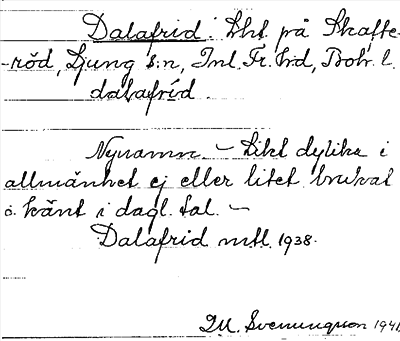 Dalafrid: Lht på Skafte-
-röd, Ljung s:n, Inl. Fr. hd, Boh. l.
dalafríd.
Nynamn. – Likt dylika i
allmänhet ej eller litet brukat
o. känt i dagl. tal. –
Dalafrid mtl. 1938.
M. Svenungsson 1941